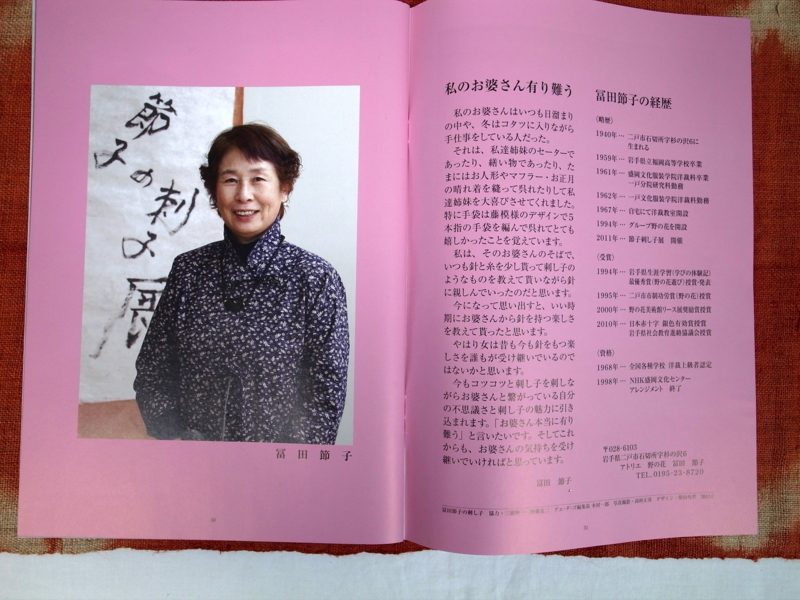 節子の刺子展
冨田節子
私のお婆さん有り難う
私のお婆さんはいつも日溜まり
の中や、冬はコタツに入りながら
手仕事をしている人だった。
それは、私達姉妹のセーターで
あったり、繕い物であったり、た
まにはお人形やマフラー・お正月
の晴れ着を縫って呉れたりして私
達姉妹を大喜びさせてくれました。
特に手袋は藤模様のデザインで5
本指の手袋を編んで呉れてとても
嬉しかったことを覚えています。
私は、そのお婆さんのそばで、
いつも針と糸を少し貰って刺し子の
ようなものを教えて貰いながら針
に親しんでいったのだと思います。
今になって思い出すと、いい時
期にお婆さんから針を持つ楽しさ
を教えて貰ったと思います。
やはり女は昔も今も針をもつ楽
しさを誰もが受け継いでいるので
はないかと思います。
今もコツコツと刺し子を刺しな
がらお婆さんと繋がっている自分
の不思議さと刺し子の魅力に引き
込まれます。「お婆さん本当に有り
難う」と言いたいです。そしてこれ
からも、お婆さんの気持ちを受け
継いでいければと思っています。
冨田 節子
冨田節子の経歴
〈略歴〉
1940年… 二戸市石切所字杉の沢6に
生まれる
1959年… 岩手県立福岡高等学校卒業
1961年… 盛岡文化服装学院洋裁科卒業
一戸分院研究科勤務
1962年… 一戸文化服装学院洋裁科勤務
1967年… 自宅にて洋裁教室開設
1994年… グループ野の花を開設
2011年… 節子刺し子展 開催
〈受賞〉
1994年… 岩手県生涯学習(学びの体験記)
最優秀賞(野の花遊び)授賞・発表
1995年… 二戸市市制功労賞(野の花)授賞
2000年… 野の花美術館リース展奨励賞授賞
2010年… 日本赤十字 銀色有効賞授賞
岩手県社会教育連絡協議会授賞
〈資格〉
1968年… 全国各種学校 洋裁上級者認定
1998年… NHK盛岡文化センター
アレンジメント 終了
〒028-6103
岩手県二戸市石切所字杉の沢6
アトリエ 野の花 冨田 節子
TEL.0195-23-8720
冨田節子の刺し子 協力・